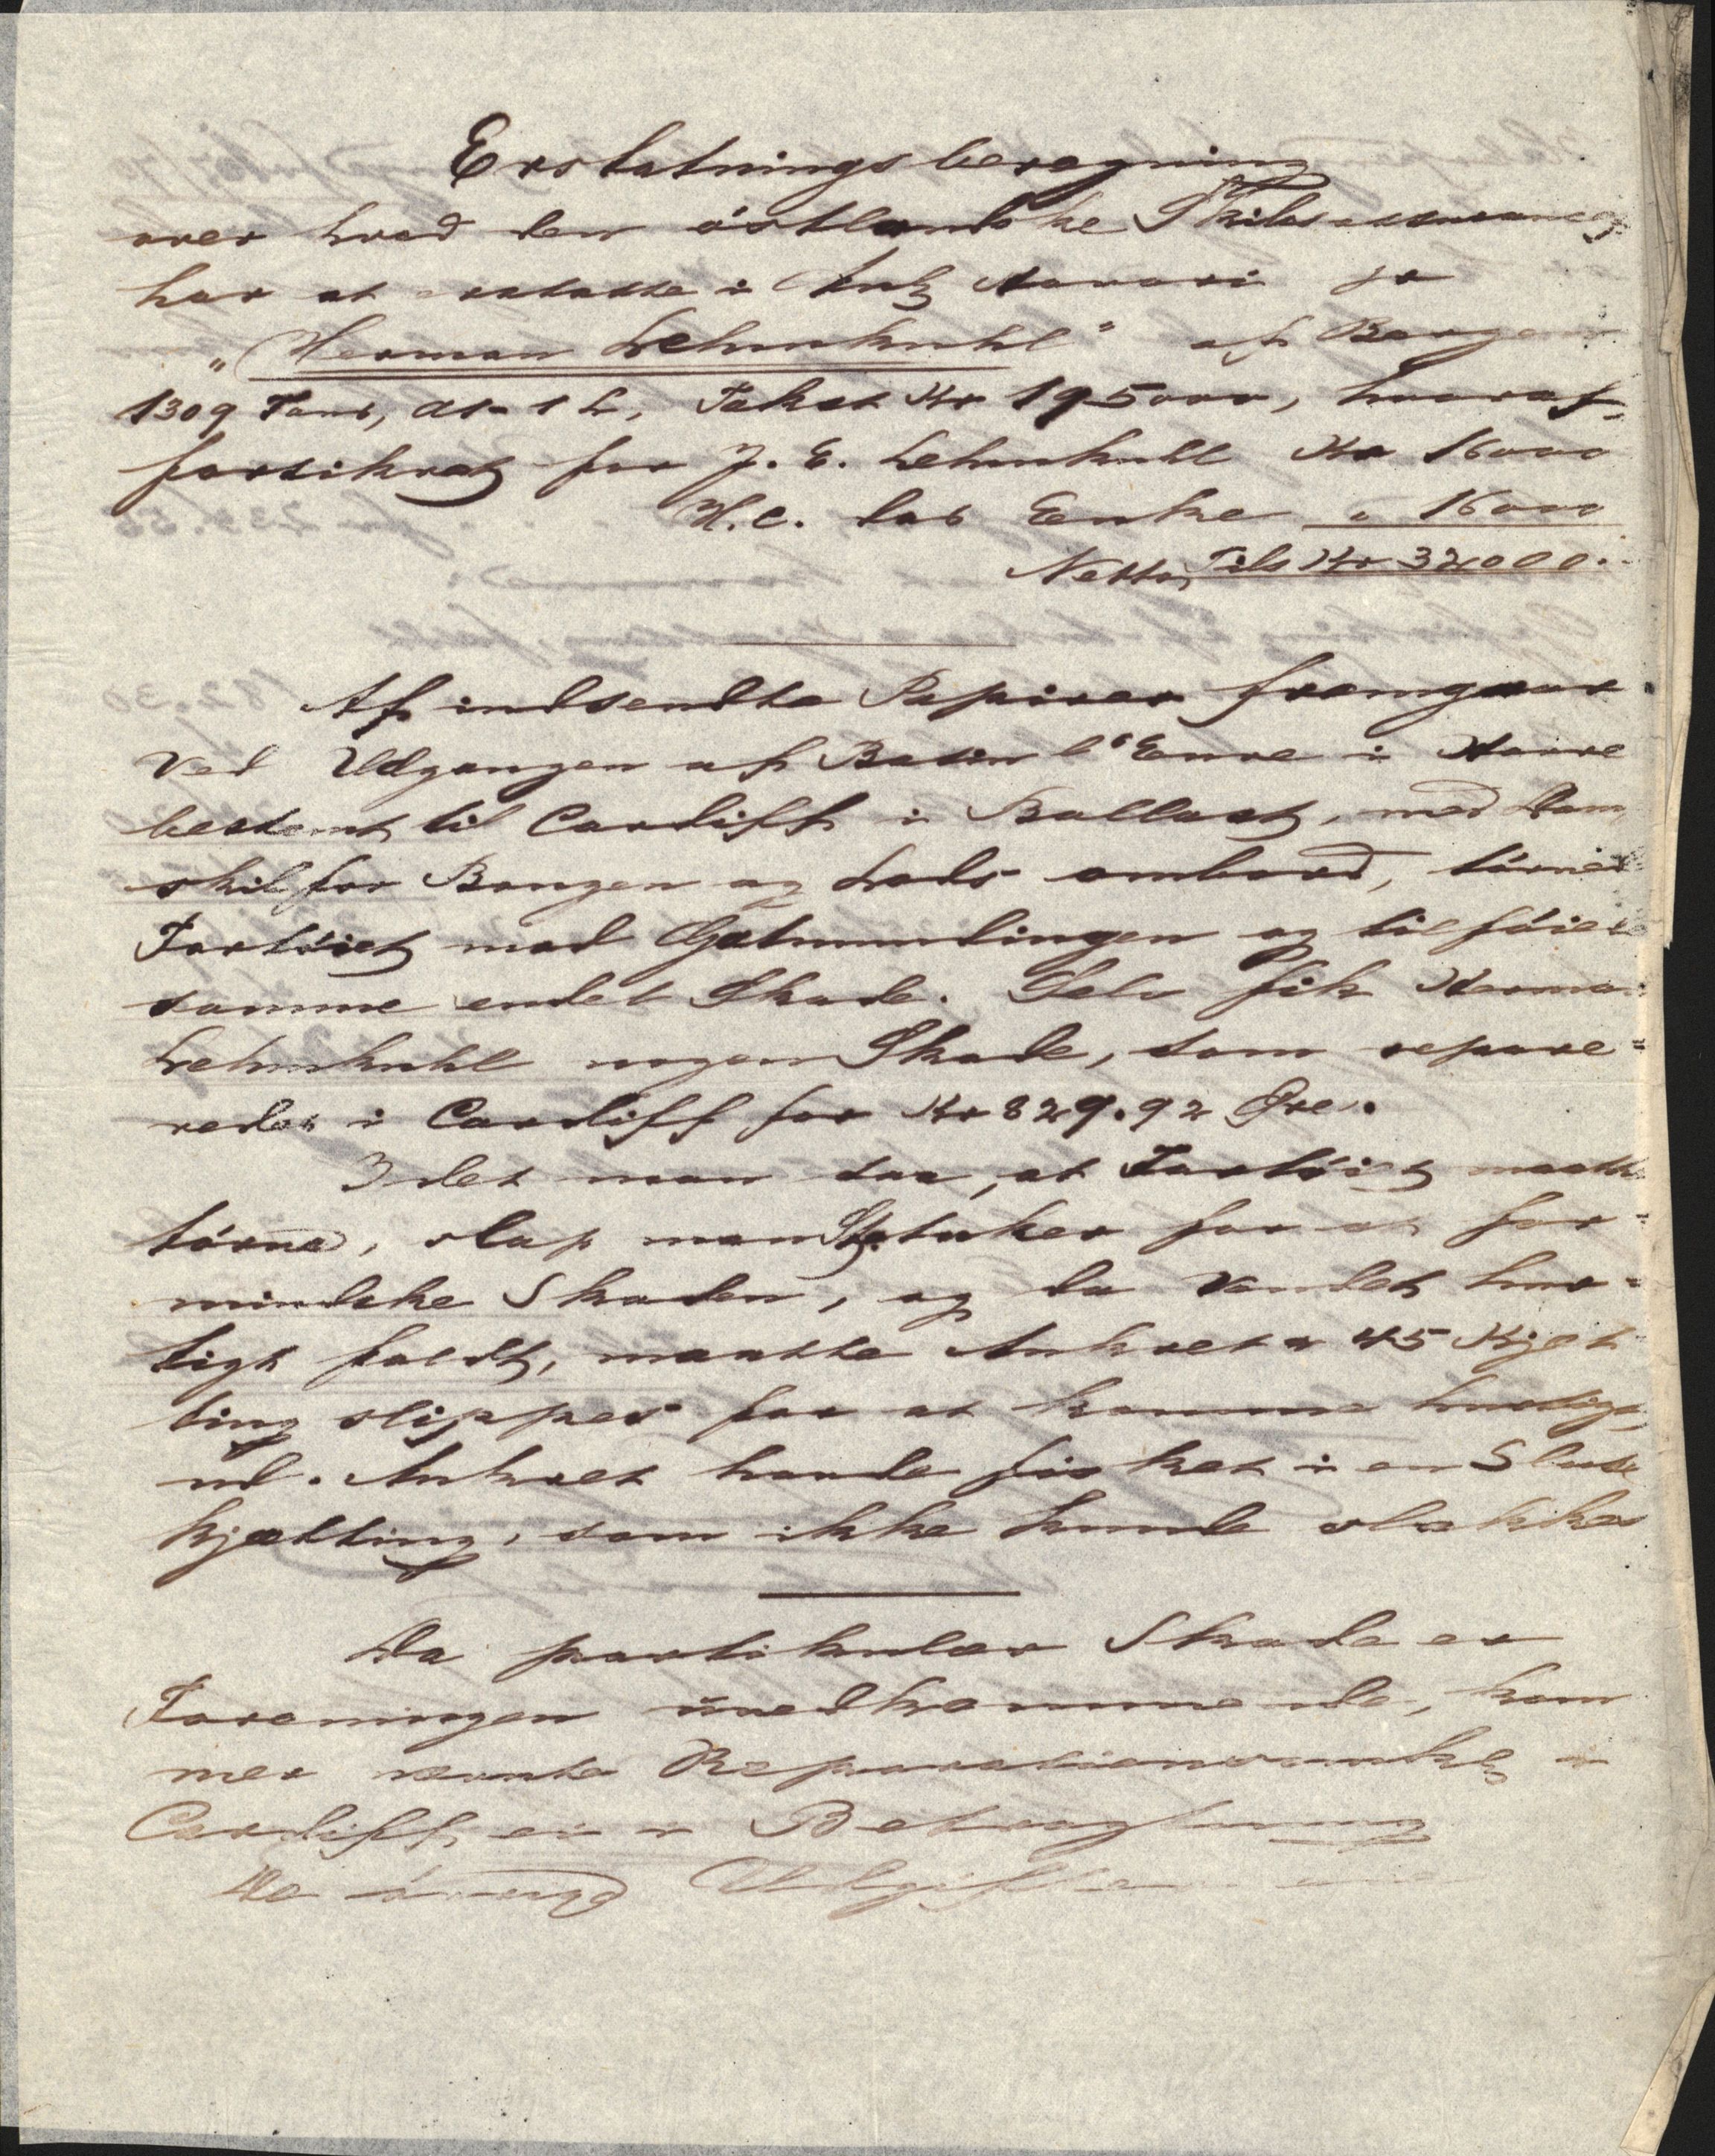 Erstatningsberegning
over hvad den östlandske Skibsassurance
har at erstatte i Havari
"Herman Lehmkuhl" af Bergen
1309 Tons, A1-1 L, Takst Kr 195000, hvoraf
forsikret for J. E. Lehmkuhl Kr 16000
H. C. Enke " 16000
Netto, Tils Kr 32000.
Af indsendte Papirer fremgaar
Ved Udgangen af Basin l'Eure i Havre
bestemt til Cardiff i Ballast, med Dam
skib for Bougen og Lods ombord, törned
Fartöiet mod Gatmundingen og tilföiede
samme endel Skade. Selv fik Herman
Lehmkuhl nogen Skade, som repare=
redes i Cardiff for Kr 829.92 Øre.
Idet man saa, at Fartöiet maatte
törne, slap man Stb. Anker for at for=
mindske Skaden, og da Vandet hur=
tigt faldt, maatte Ankret & 45 Kjet
ting slippes for at komme hurtigt
ud. Ankret havde fisket i en Sluse
kjætting, som ikke kunde slakkes
Da partikulær Skade er
Foreningen uvedkommende, kom
mer nævnte Reparation i
Cardiff ei i Betragtning
De övrige Udgifter